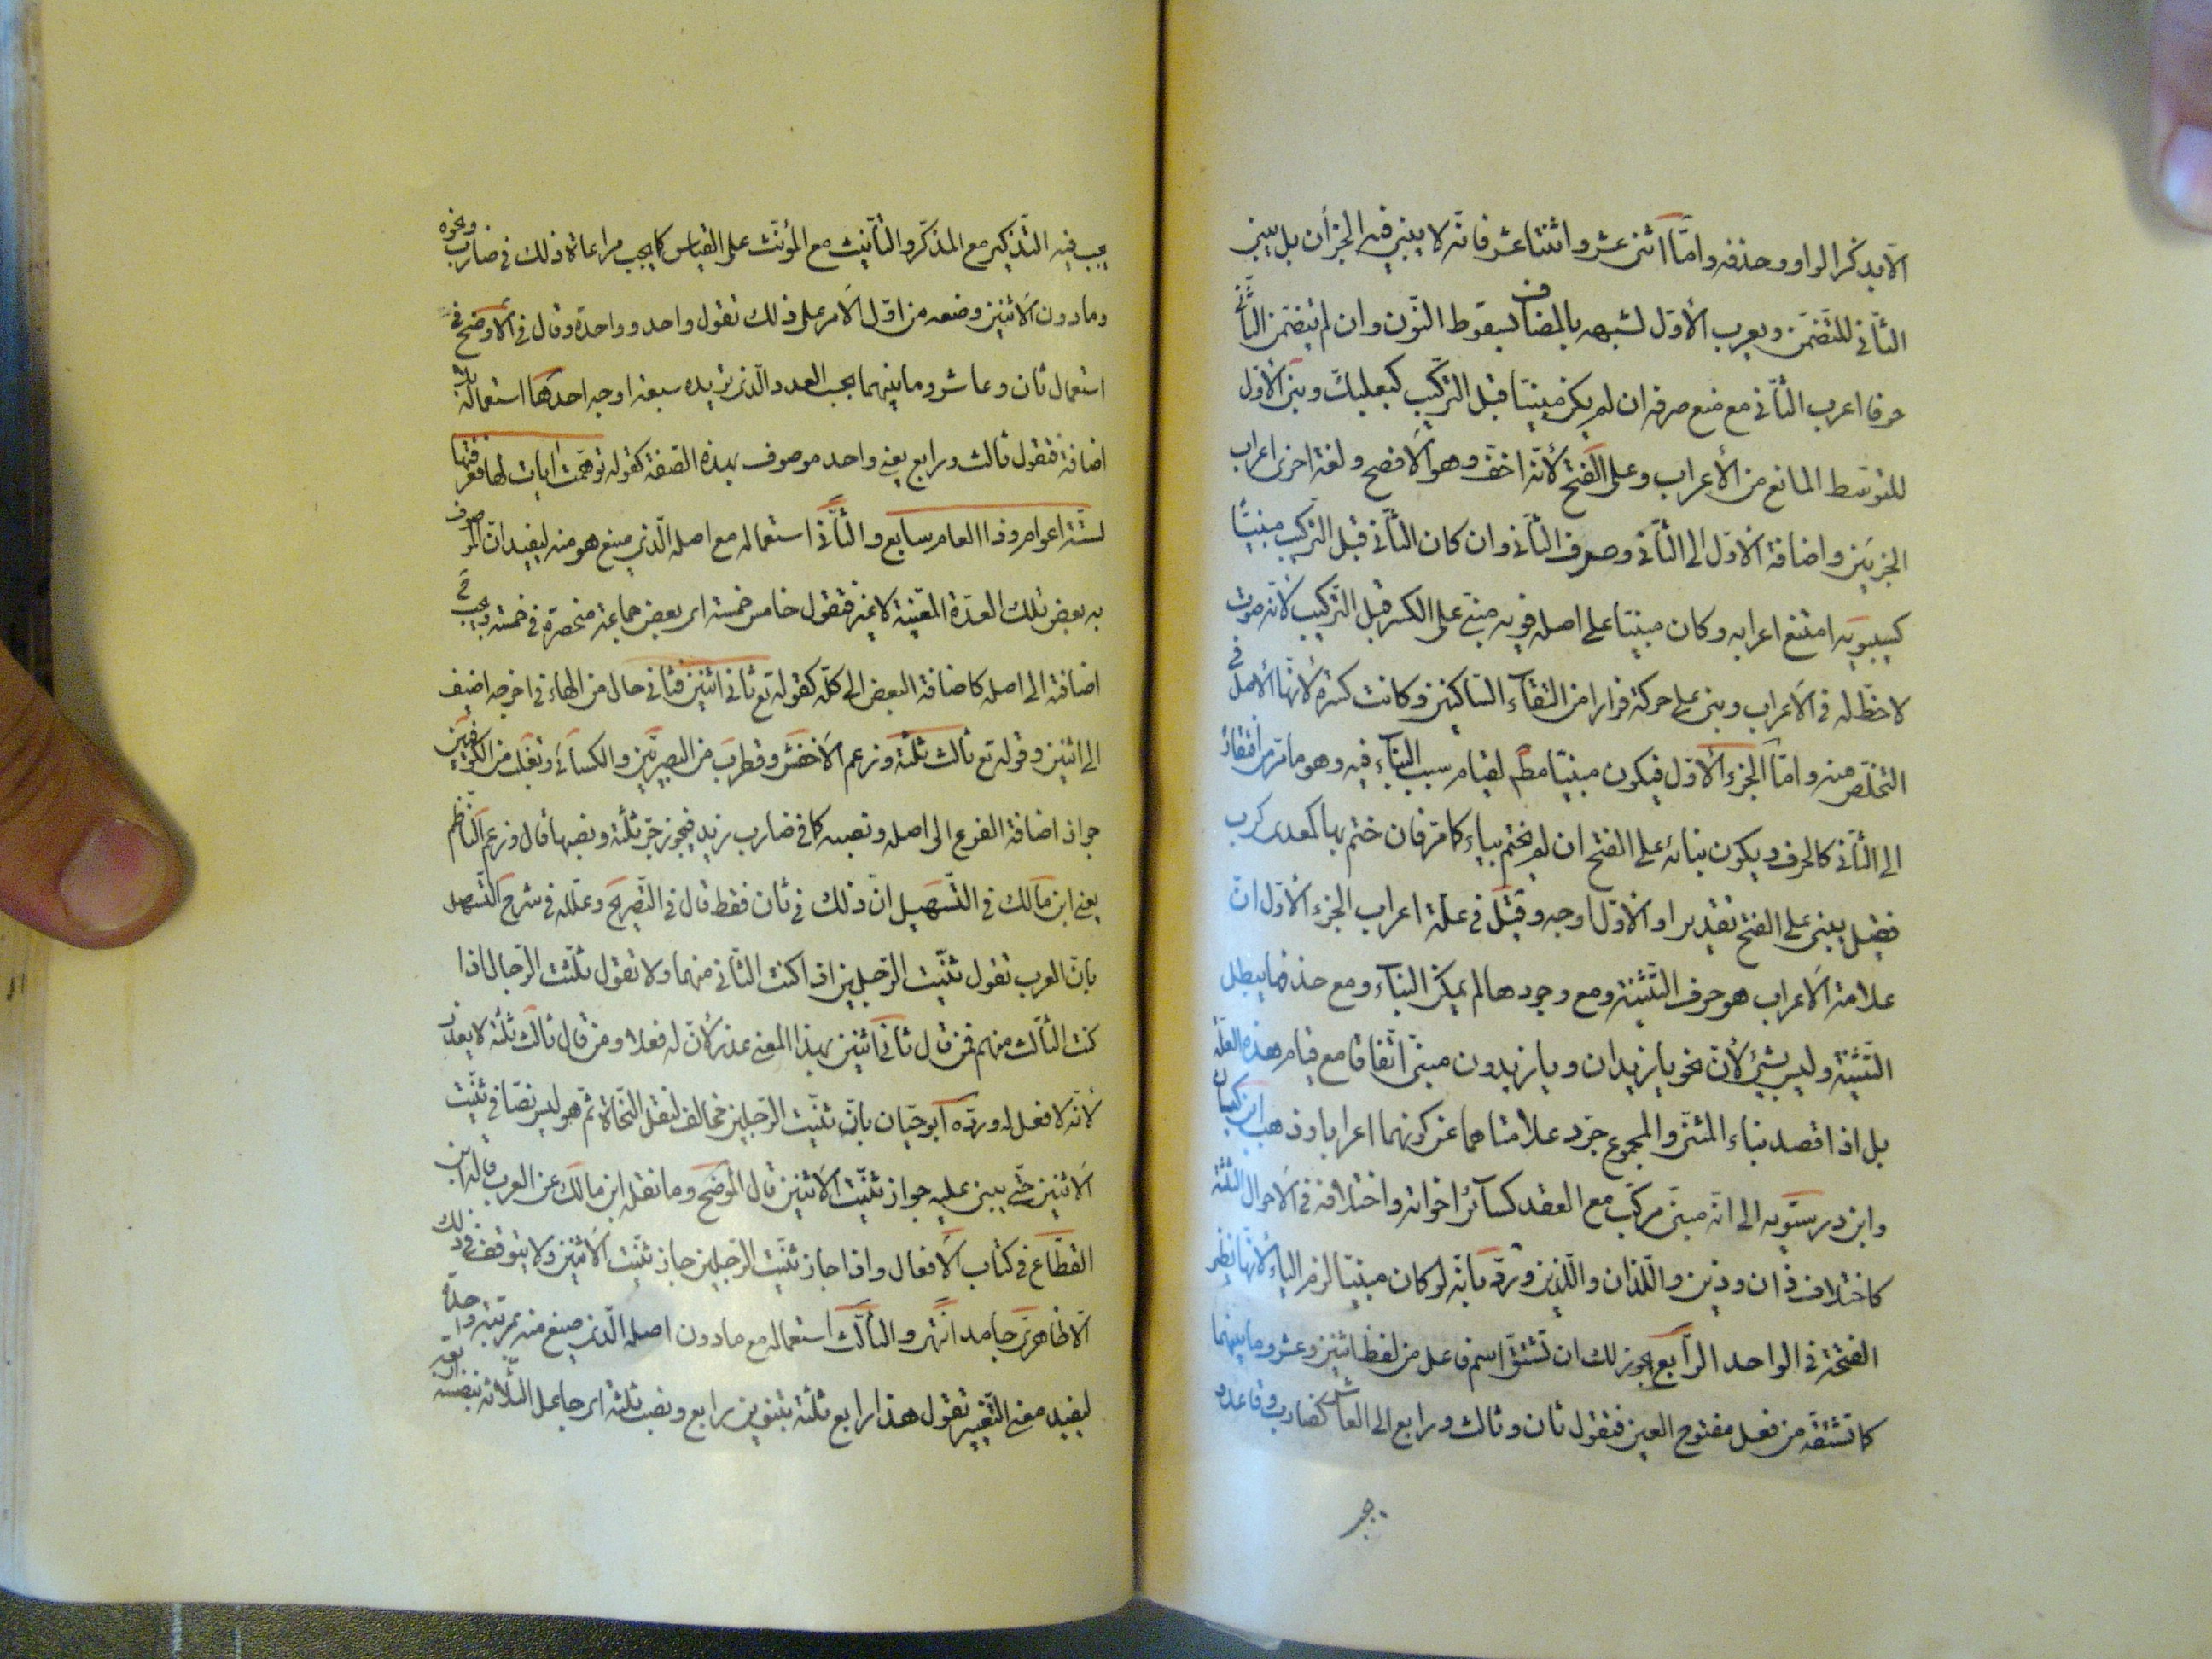 الّا بذكر الواو وحذفه وامّا اثنى عشر واثنتا عشر فانّه لا يبنى فيه الجزأن بل يبنى
الثّانى للتّضمّن ويعرب الأوّل لشبهه بالمضاف لسقوط النّون وان لم يتضمّن الثّانى
حرفا اعرب الثّانى مع منع صرفه ان لم يكن مبنيّا قبل التّركيب كبعلبكّ وبنى الأوّل
للتوسّط المانع من الأعراب وعلى الفتح لأنّه اخفّ وهو الأفصح ولغة اخرى اعراب
الجزئين واضافة الأوّل الى الثّانى وصرف الثّانى وان كان الثّانى قبل التّركيب مبنيّا
كسيبويه امتنع اعرابه وكان مبنيّا على اصله فويه مبنىّ على الكسر قبل التّركيب لأنّه صوت
لا حظّ له فى الأعراب وبنى على حركة فرارا من التقآء السّاكنين وكانت كسرة لأنّها الأصل فى
التخلّص منه وامّا الجزء الأوّل فيكون مبنيّا مطم لقيام سبب البنآء فيه وهو ما مرّ من افتقاره
الى الثّانى كالحرف ويكون بنائه على الفتح ان لم يختم بياء كما مرّ فان ختم بها كمعدى كرب
فقيل يبنى على الفتح تقديرا والأوّل اوجه وقيل فى علّة اعراب الجزء الأوّل انّ
علامة الأعراب هو حرف التّثنية ومع وجودها لم يمكن البنآء ومع حذفها يبطل
التّثنية وليس بشئ لأنّ نحو يا زيدان ويا زيدون مبنىّ اتّفاقا مع قيام هذه العلّة
بل اذا قصد بناء المثنّى والمجموع جرّد علامتاهما عن كونهما اعرابا وذهب ابن كيسان
وابن درستويه الى انّه مبنىّ مركّب مع العقد كسآئر اخواته واختلافه فى الأحوال الثلثة
كاختلاف ذان وذين واللّذان واللّذين وردّ بانّه لو كان مبنيّا لزم الياء لأنّها نظير
الفتحة فى الواحد الرّابع يجوز لك ان تشتقّ اسم فاعل من لفظ اثنين وعشر وما بينهما
كما تشتقّه من فعل مفتوح العين فتقول ثان وثالث ورابع الى العاشر كضارب وقاعد
يجب فيه التّذكير مع المذكّر والتّأنيث مع المؤنّث على القياس كما يجب مراعاة ذلك فى ضارب ونحوه
وما دون الأثنين وضعه من اوّل الأمر على ذلك تقول واحد وواحدة وقال فى الأوضح فى
استعمال ثان وعاشر وما بينهما بحسب العدد الّذى تريده سبعة اوجه احدها استعماله بلا
اضافة فتقول ثالث ورابع يعنى واحد موصوف بهذه الصّفة كقوله توهّمت ايات لها فعرفتها
لستّة اعوام وذا العام سابع والثّانى استعماله مع اصله الّذى صيغ هو منه ليفيد انّ الموصوف
به بعض تلك العدّة المعيّنة لا غير فتقول خامس خمسة اى بعض جماعة منحصرة فى خمسة ويجب ح
اضافته الى اصله كاضافة البعض الى كلّه كقوله تع ثانى اثنين فثانى حال من الهاء فى اخرجه اضيف
الى اثنين وقوله تع ثالث ثلثة وزعم الأخفش وقطرب من البصريّين والكسآئى وثعلب من الكوفيّين
جواز اضافة الفرع الى اصله ونصبه كما فى ضارب زيد فيجوز جرّ ثلثة ونصبها قال وزعم النّاظم
يعنى ابن مالك فى التّسهيل انّ ذلك فى ثان فقط قال فى التّصريح وعلّله فى شرح التّسهيل
بانّ العرب تقول ثنّيت الرّجلين اذا كنت الثّانى منهما ولا تقول ثلّثت الرّجال اذا
كنت الثّالث منهم فمن قال ثانى اثنين بهذا المعنى عذر لأنّ له فعلا ومن قال ثالث ثلثة لا يعذر
لأنّه لا فعل له وردّه ابو حيّان بانّ ثنّيت الرّجلين مخالف لنقل النّحاة ثمّ هو ليس نصّا فى ثنّيت
الأثنين حتّى يبنى عليه جواز ثنّيت الأثنين قال الموضح وما نقله ابن مالك عن العرب قاله ابن
القطّاع فى كتاب الأفعال واذا جاز ثنّيت الرّجلين جاز ثنّيت الأثنين ولا يتوقّف فى ذلك
الّا ظاهرىّ جامد انتهى والثّالث استعماله مع ما دون اصله الّذى صيغ منه بمرتبة واحدة
ليفيد معنى التّغيير تقول هذا رابع ثلثة بتنوين رابع ونصب ثلثة اى جاعل الثّلاثة بنفسه اربعة